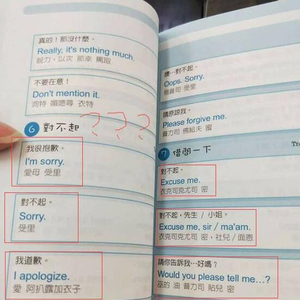 真的！那沒什麼。
Really, it's nothing much.
不要在意！
Don't mention it.
???
6 對不起
我很抱歉。
I'm sorry.
愛母 受里
對不起。
Sorry.
受里
我道歉。
I apologize.
愛 阿扒露加衣子
對不起。
Oops. Sorry.
請原諒我。
Please forgive me.
7 借問一下
對不起。
Excuse me.
衣克司克尤司 密
對不起，先生／小姐。
Excuse me, sir / ma'am.
請你告訴我…好嗎？
Would you please tell me…?